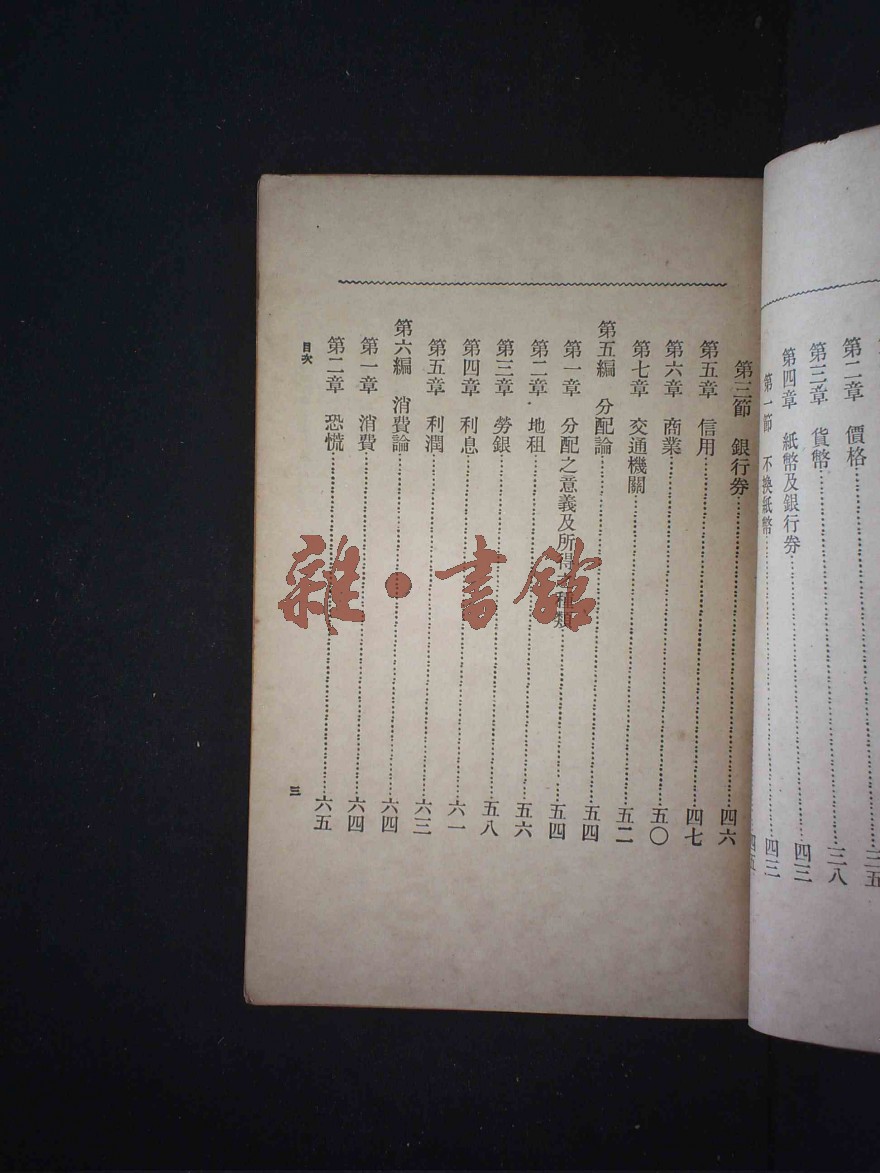 第二章 價格……三五
第三章 貨幣……三八
第四章 紙幣及銀行券……四三
第一節 不換紙幣……四三
四五
第三節 銀行券……四六
第五章 信用……四七
第六章 商業……五〇
第七章 交通機關……五二
第五編 分配論……五四
第一章 分配之意義及所得之種類……五四
第二章 地租……五六
第三章 勞銀……五八
第四章 利息……六一
第五章 利潤……六三
第六編 消費論……六四
第一章 消費……六四
第二章 恐慌……六五
目次
三
雜·書館